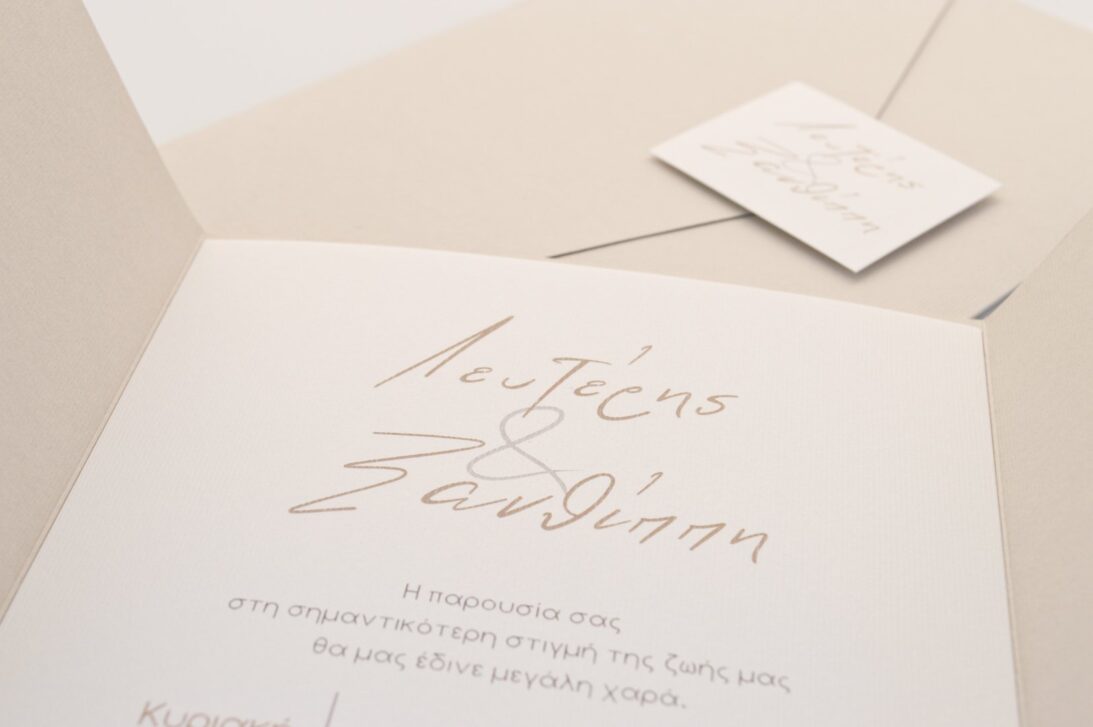 Λευτέρης
&
Ξανθίππη
Λευτέρης
&
Ξανθίππη
Η παρουσία σας
στη σημαντικότερη στιγμή της ζωής μας
θα μας έδινε μεγάλη χαρά.
Κυριακή